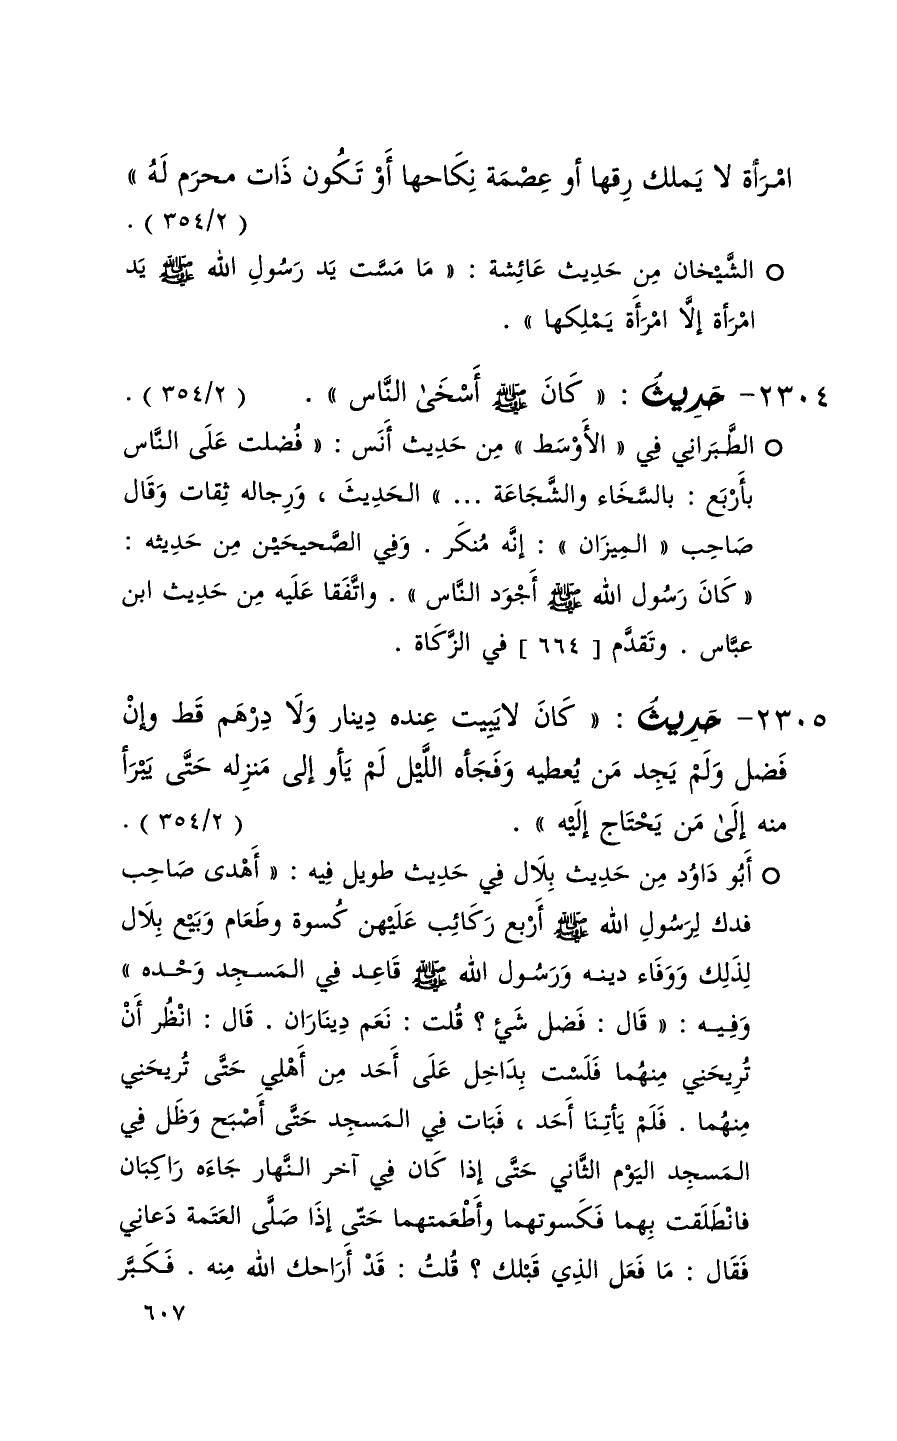 امْرَأة لا يَملك رِقها أو عِصْمَة نِكَاحها أَوْ تَكُون ذَات محرَم لَهُ »
( ٣٥٤/٢ ) .
○ الشَّيْخان مِن حَدِيث عَائِشة : « مَا مَسَّت يَد رَسُولِ الله ﷺ يَد
امْرَأة إلَّا امْرَأَة يَمْلِكها » .
٢٣٠٤- حَدِيثُ : « كَانَ ﷺ أَسْخَىٰ النَّاس » . ( ٣٥٤/٢ ) .
○ الطَّبَرانِي فِي « الأَوْسَط » مِن حَدِيث أَنَس : « فُضلت عَلَى النَّاس
بأَرْبَع : بالسَّخَاء والشَّجَاعَة ... » الحَدِيثَ ، وَرِجاله ثِقات وَقَال
صَاحِب « المِيزَان » : إنَّه مُنكَر . وَفِي الصَّحيحَيْن مِن حَدِيثه :
« كَانَ رَسُول الله ﷺ أَجْوَد النَّاس » . واتَّفَقا عَلَيه مِن حَدِيث ابن
عبَّاس . وتَقدَّم [ ٦٦٤ ] في الزَّكَاة .
٢٣٠٥- حَدِيثُ : « كَانَ لايَبِيت عِنده دِينار وَلَا دِرْهَم قَط وإنْ
فَضل وَلَمْ يَجِد مَن يُعطيه وَفَجأه اللَّيْل لَمْ يَأو إلى مَنزِله حَتَّى يَبْرَأ
منه إلَىٰ مَن يَحْتَاج إلَيْه » . ( ٣٥٤/٢ ) .
○ أَبُو دَاوُد مِن حَدِيث بِلَال فِي حَدِيث طويل فِيه : « أَهْدى صَاحِب
فدك لِرَسُولِ الله ﷺ أَرْبع رَكَائِب عَلَيْهن كُسوة وطَعَام وَبَيْع بِلَال
لِذَلِك وَوَفَاء دينه وَرَسُول الله ﷺ قَاعِد فِي المَسجِد وَحْده »
وَفِيه : « قَال : فَضل شَيْء ؟ قُلت : نَعَم دِينَارَان . قَال : انْظُر أَنْ
تُرِيحَنِي مِنهُما فَلَسْت بِدَاخِل عَلَى أَحَد مِن أَهْلِي حَتَّى تُريحَني
مِنهُما . فَلَمْ يَأتِنَا أَحَد ، فَبَات فِي المَسجِد حَتَّى أَصْبَح وَظَل فِي
المَسجِد اليَوْم الثَّاني حَتَّى إذا كَان فِي آخر النَّهار جَاءَه رَاكِبَان
فانْطَلَقت بِهما فَكَسوتهما وأَطْعَمتهما حَتّى إذَا صَلَّى العَتَمة دَعاني
فَقَال : مَا فَعَل الذِي قَبْلك ؟ قُلتُ : قَدْ أَرَاحك الله مِنه . فَكَبَّر
٦٠٧